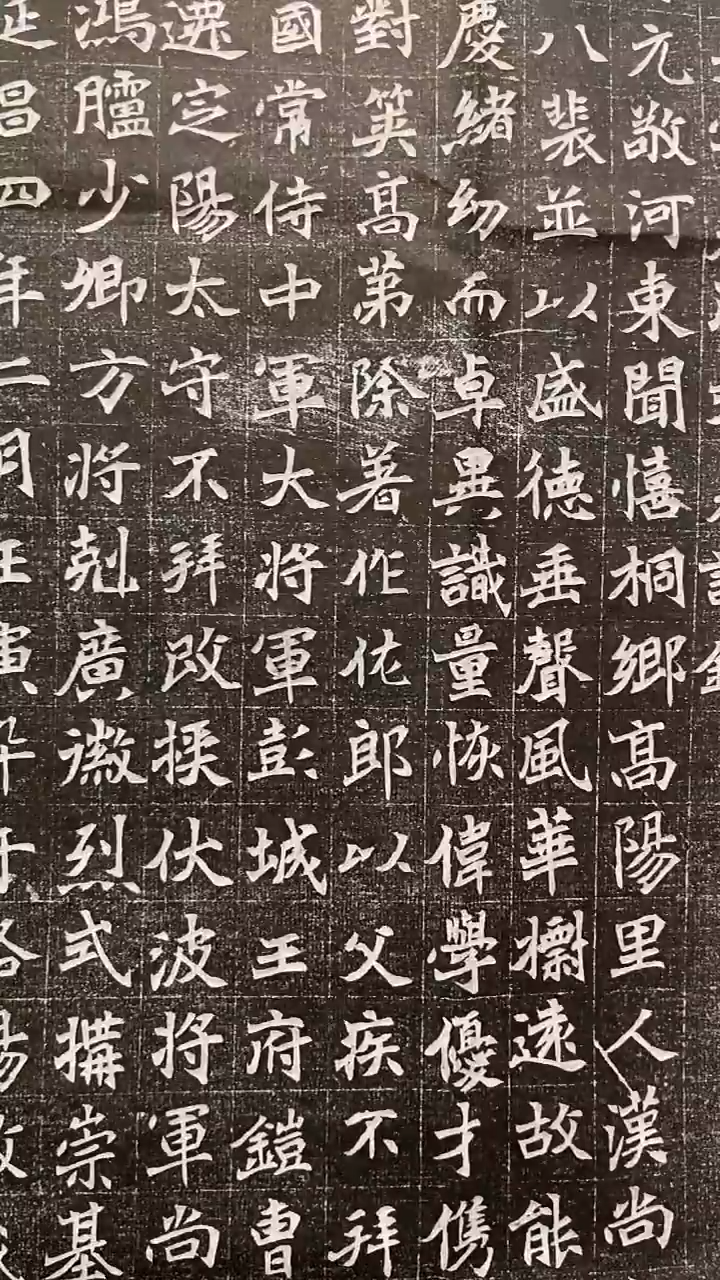 元敬河東聞憘桐鄉高陽里人漢尚
八裴並以盛德垂聲風華遠故能
慶緒幼而卓異識量恢偉學優才儁
對筴高第除著作佐郎以父疾不拜
國常侍中軍大將軍彭城王府鎧曹
遷定陽太守不拜改授伏波將軍尚
鴻臚少卿方將剋廣徽烈式搆崇基
延昌四年二月